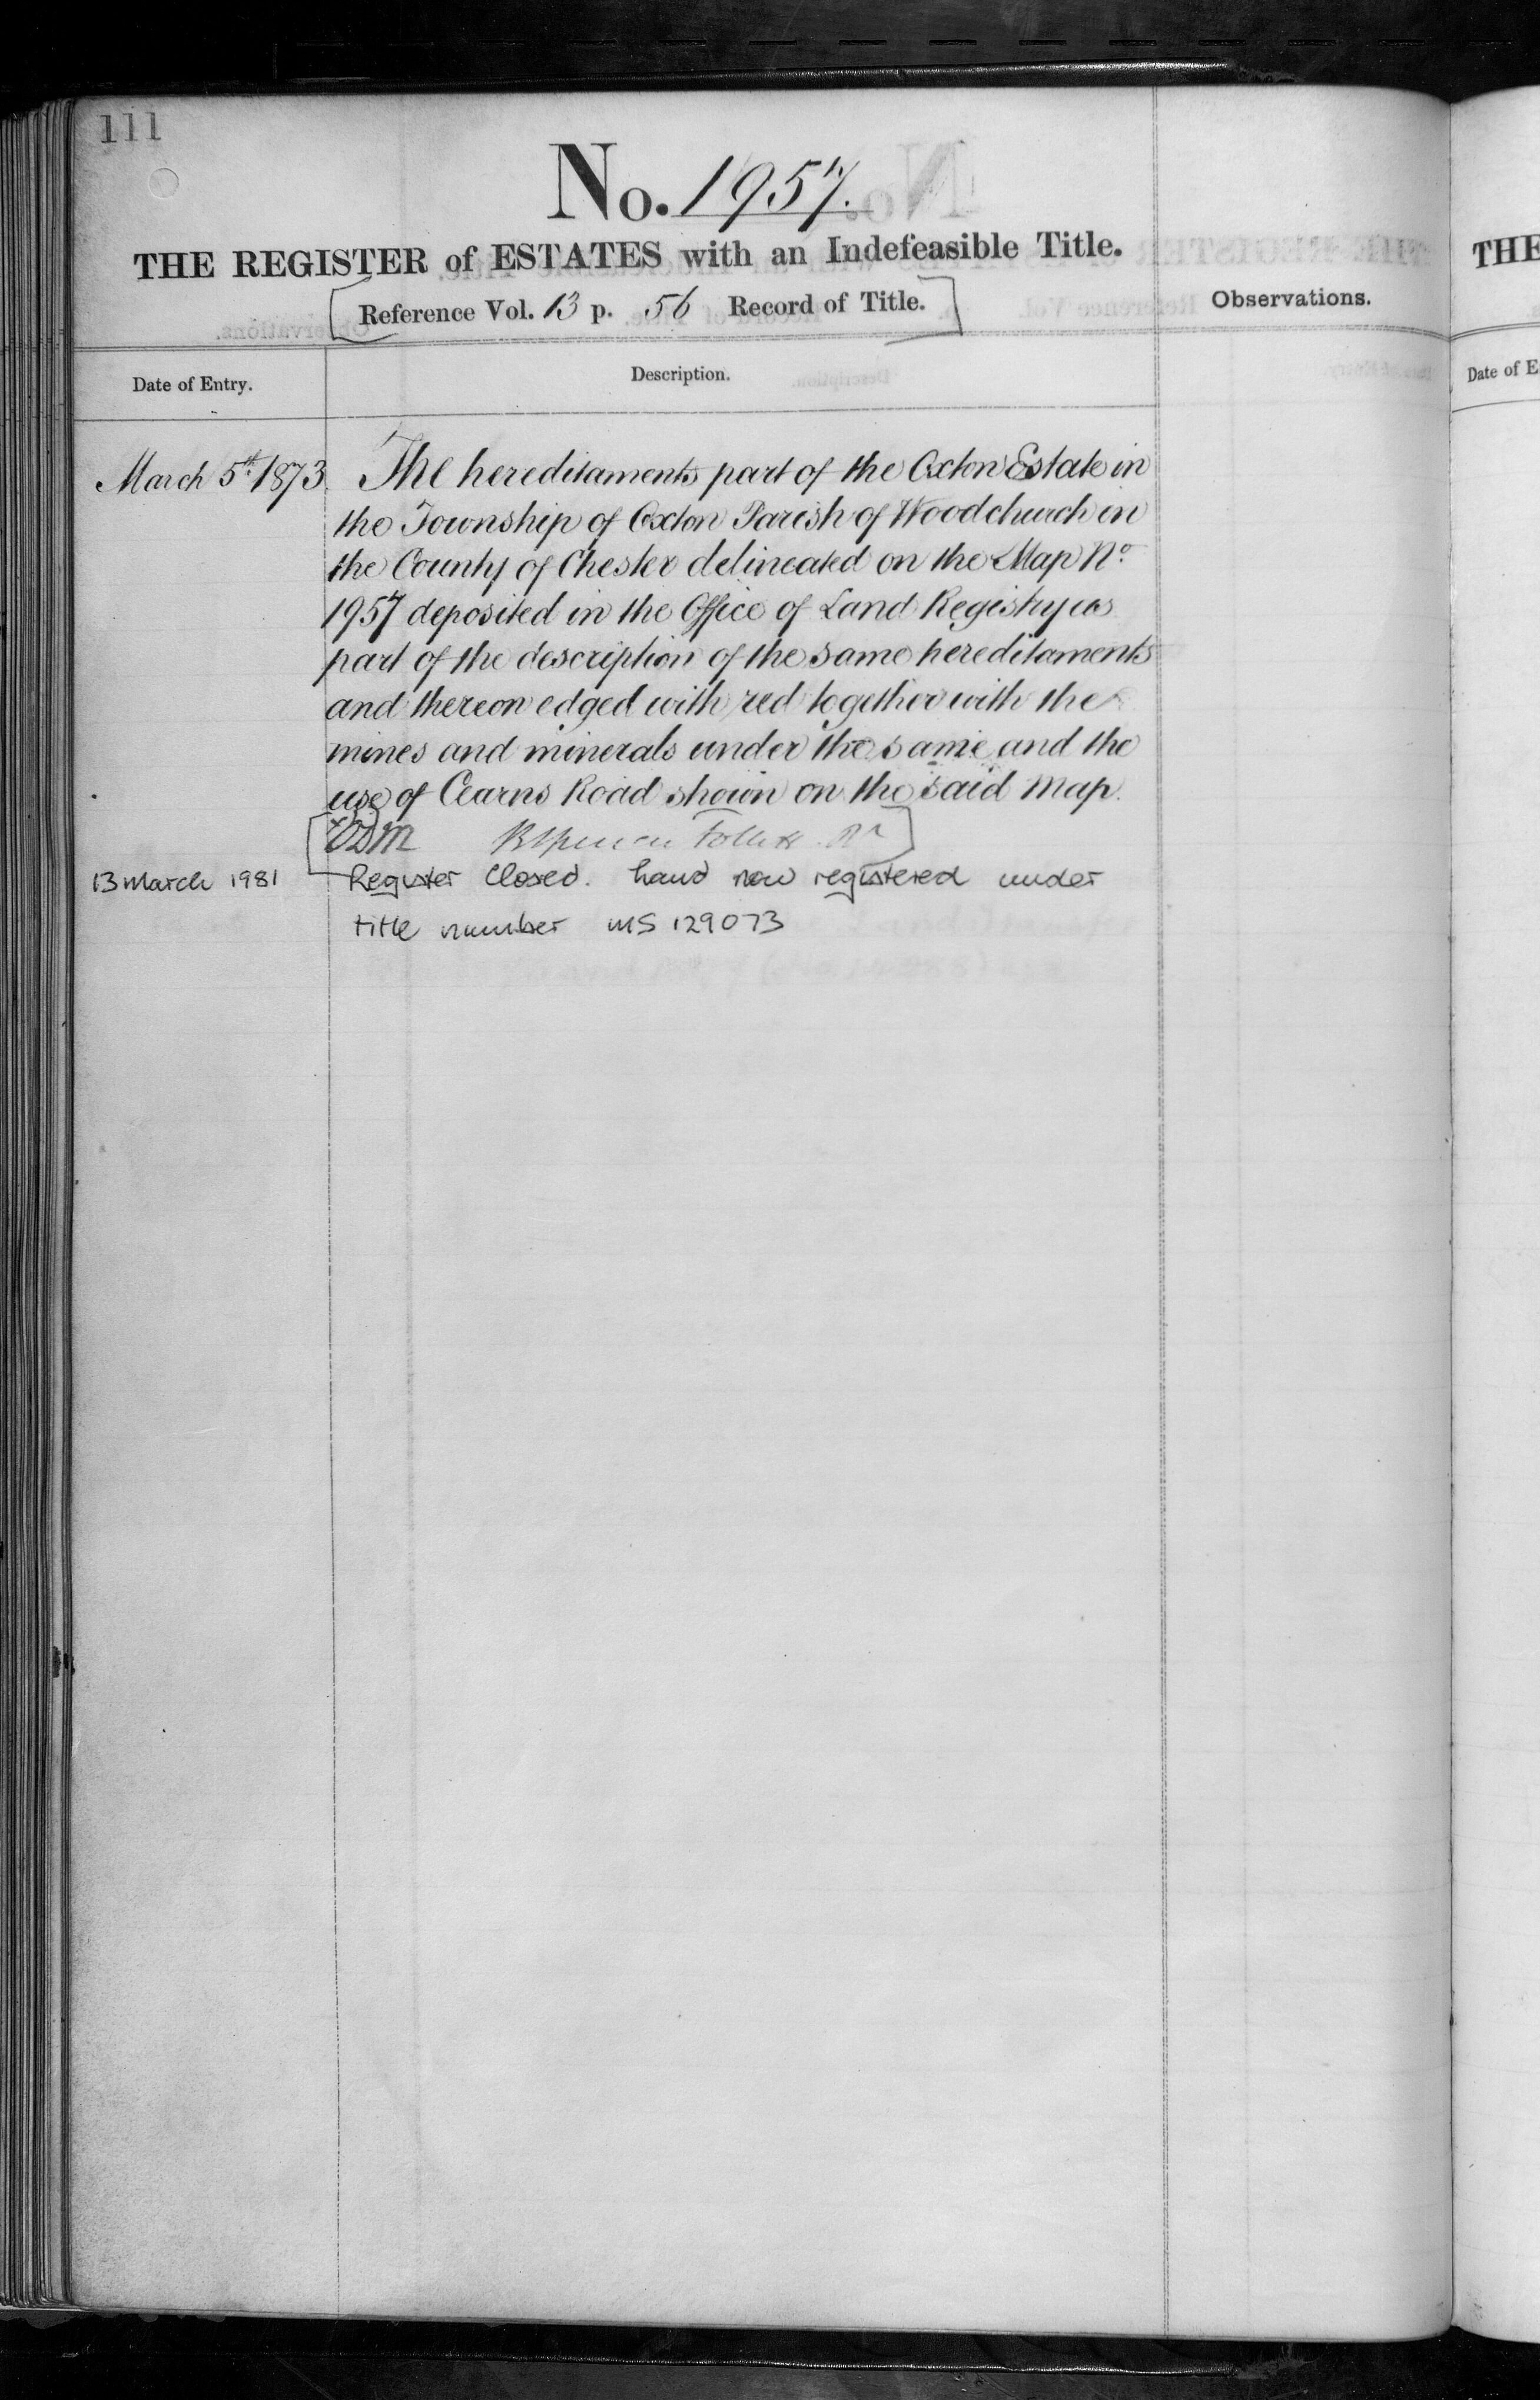 111
No. 1957.
THE REGISTER of ESTATES with an Indefeasible Title.
Reference Vol. 13 p. 56 Record of Title.
Observations.
Date of Entry.
Description.
March 5th 1873
The hereditaments part of the Oxton Estate in
the Township of Oxton Parish of Woodchurch in
the County of Chester delineated on the Map No.
1957 deposited in the Office of Land Registry as
part of the description of the same hereditaments
and thereon edged with red together with the
mines and minerals under the same and the
use of Cearns Road shown on the said Map.
13 March 1981
Register Closed. Land now registered under
title number MS 129073
THE
Date of E